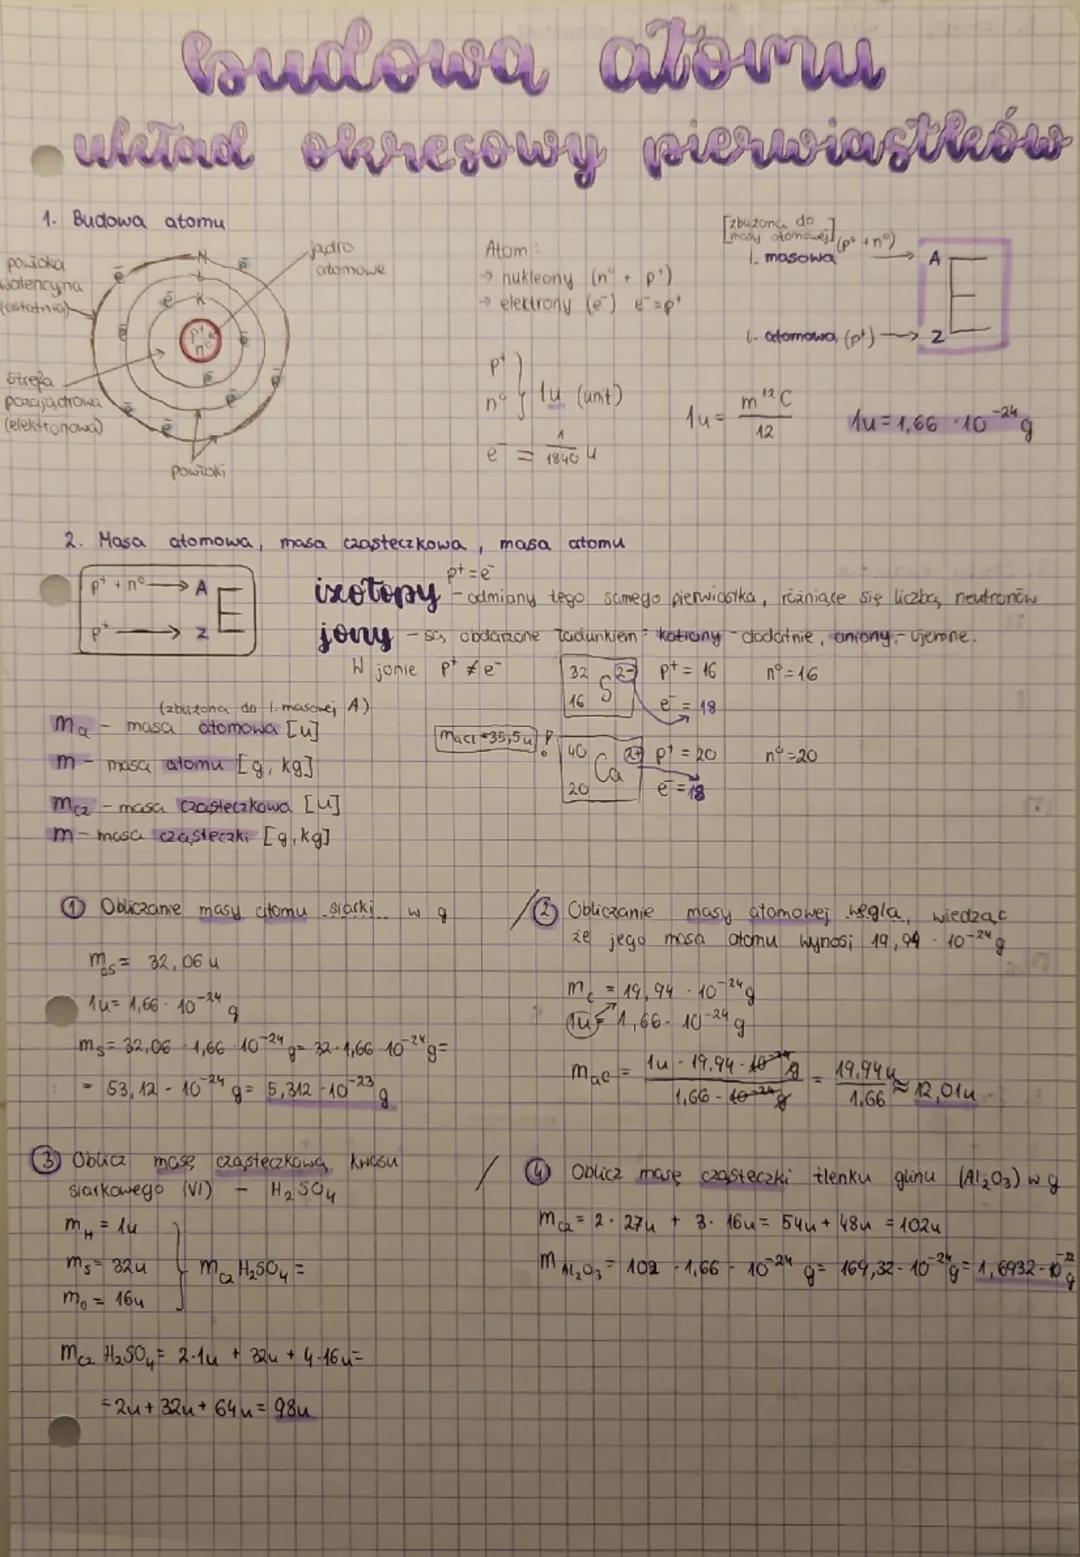 Budowa atomu
układ okresowy pierwiastków
1. Budowa atomu
powłoka
walencyjna
(ostatnia)
jądro
atomowe
N
L
K
p⁺
n⁰
e⁻
e⁻
e⁻
e⁻
e⁻
e⁻
e⁻
e⁻
e⁻
e⁻
strefa
pozajądrowa
(elektronowa)
powłoki
Atom:
→ nukleony (n⁰ + p⁺)
→ elektrony (e⁻) e⁻=p⁺
p⁺
n⁰ } 1u (unit)
e⁻ = 1/1840 u
[zbliżona do
masy atomowej]
l. masowa (p⁺ + n⁰) → A
E
l. atomowa (p⁺) → Z
1u = m ¹²C / 12
1u = 1,66 · 10⁻²⁴ g
2. Masa atomowa, masa cząsteczkowa, masa atomu
p⁺ + n⁰ → A
E
p⁺ → Z
p⁺ = e⁻
izotopy - odmiany tego samego pierwiastka, różniące się liczbą neutronów
jony - są obdarzone ładunkiem: kationy - dodatnie, aniony - ujemne.
W jonie p⁺ ≠ e⁻
32 16 S 2- p⁺ = 16 n⁰ = 16
e⁻ = 18
maCl = 35,5u !
40 20 Ca 2+ p⁺ = 20 n⁰ = 20
e⁻ = 18
(zbliżona do l. masowej A)
ma - masa atomowa [u]
m - masa atomu [g, kg]
mcz - masa cząsteczkowa [u]
m - masa cząsteczki [g, kg]
① Obliczanie masy atomu siarki w g
mas = 32,06 u
1u = 1,66 · 10⁻²⁴ g
ms = 32,06 · 1,66 · 10⁻²⁴ g = 32 · 1,66 · 10⁻²⁴ g =
= 53,12 · 10⁻²⁴ g = 5,312 · 10⁻²³ g
② Obliczanie masy atomowej węgla, wiedząc
że jego masa atomu wynosi 19,94 · 10⁻²⁴ g
mc = 19,94 · 10⁻²⁴ g
1u = 1,66 · 10⁻²⁴ g
mac = 1u · 19,94 · 10⁻²⁴ g / 1,66 · 10⁻²⁴ g = 19,94 u / 1,66 ≈ 12,01u
③ Oblicz masę cząsteczkową kwasu
siarkowego (VI) - H₂SO₄
mH = 1u
ms = 32u } mcz H₂SO₄ =
mo = 16u
mcz H₂SO₄ = 2·1u + 32u + 4·16u =
= 2u + 32u + 64u = 98u
④ Oblicz masę cząsteczki tlenku glinu (Al₂O₃) w g
mcz = 2 · 27u + 3 · 16u = 54u + 48u = 102u
m Al₂O₃ = 102 · 1,66 · 10⁻²⁴ g = 169,32 · 10⁻²⁴ g = 1,6932 · 10⁻²² g